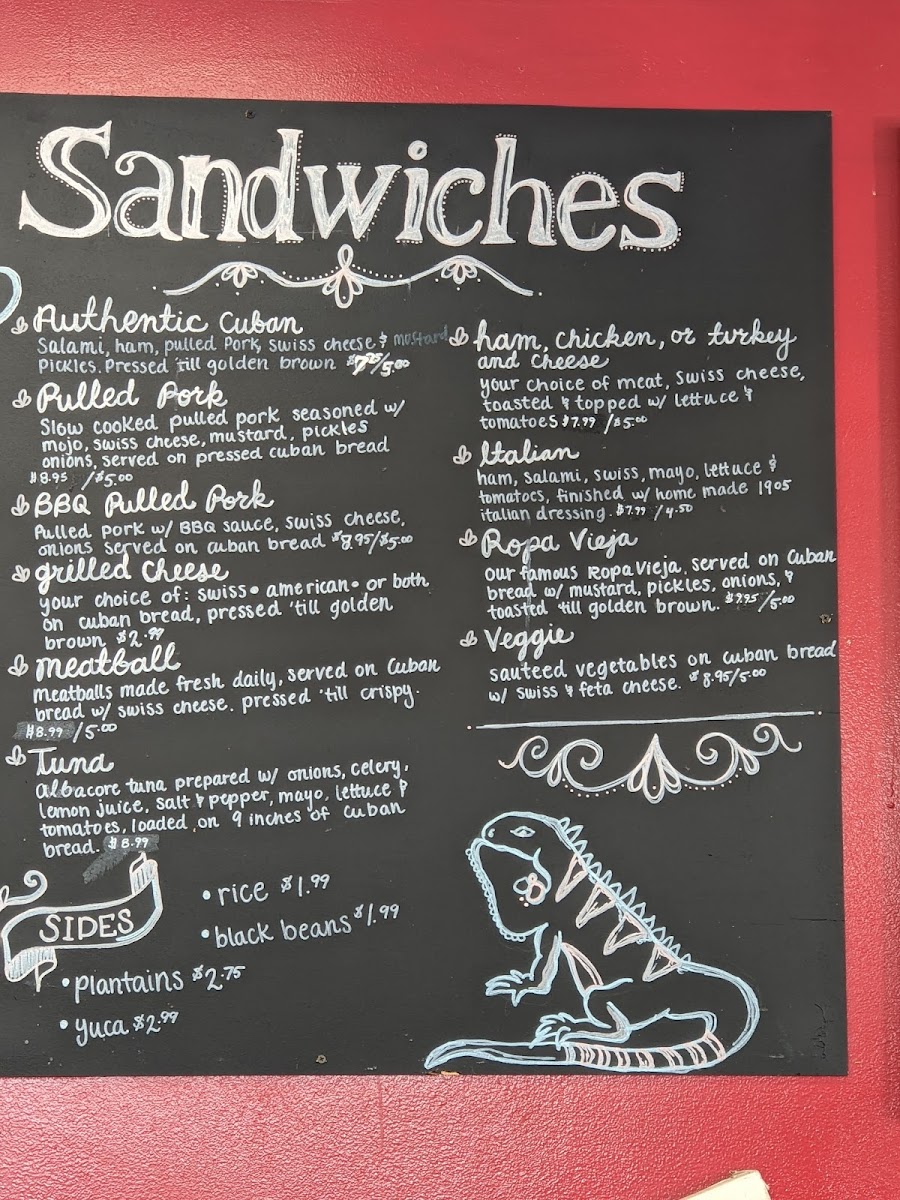 Sandwiches
Authentic Cuban
Salami, ham, pulled Pork, swiss cheese & mustard
Pickles. Pressed 'till golden brown /5.00
Pulled Pork
Slow cooked pulled pork seasoned w/
mojo, swiss cheese, mustard, pickles
onions, served on pressed cuban bread
$8.95 /$5.00
BBQ Pulled Pork
Pulled pork w/ BBQ sauce, swiss cheese,
onions served on cuban bread $8.95/$5.00
grilled cheese
your choice of: swiss • american • or both
on cuban bread, pressed 'till golden
brown $2.99
meatball
meatballs made fresh daily, served on Cuban
bread w/ swiss cheese. pressed 'till crispy.
$8.99 /5.00
Tuna
albacore tuna prepared w/ onions, celery,
lemon juice, salt & pepper, mayo, lettuce &
tomatoes, loaded on 9 inches of cuban
bread. $8.99
ham, chicken, or turkey
and cheese
your choice of meat, swiss cheese,
toasted & topped w/ lettuce &
tomatoes $7.99 /$5.00
Italian
ham, salami, swiss, mayo, lettuce &
tomatoes, finished w/ home made 1905
italian dressing. $7.99 /4.50
Ropa Vieja
our famous Ropa Vieja, served on Cuban
bread w/ mustard, pickles, onions, &
toasted 'till golden brown. /5.00
Veggie
sauteed vegetables on cuban bread
w/ swiss & feta cheese. $8.95/5.00
SIDES
• rice $1.99
• black beans $1.99
• plantains $2.75
• yuca $2.99